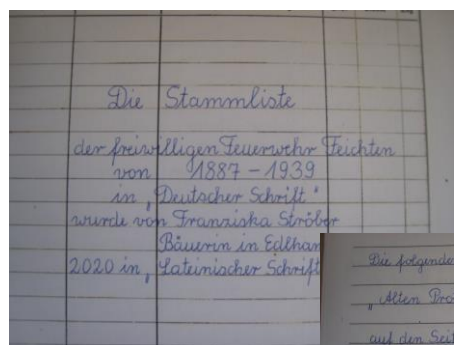 Die Stammliste
der freiwilligen Feuerwehr Feichten
von 1887 - 1939
in „Deutscher Schrift"
wurde von Franziska Ströber
Bäuerin in Edlhan
2020 in „Lateinischer Schrift
Die folgende
„Alten Pro
auf den Seit